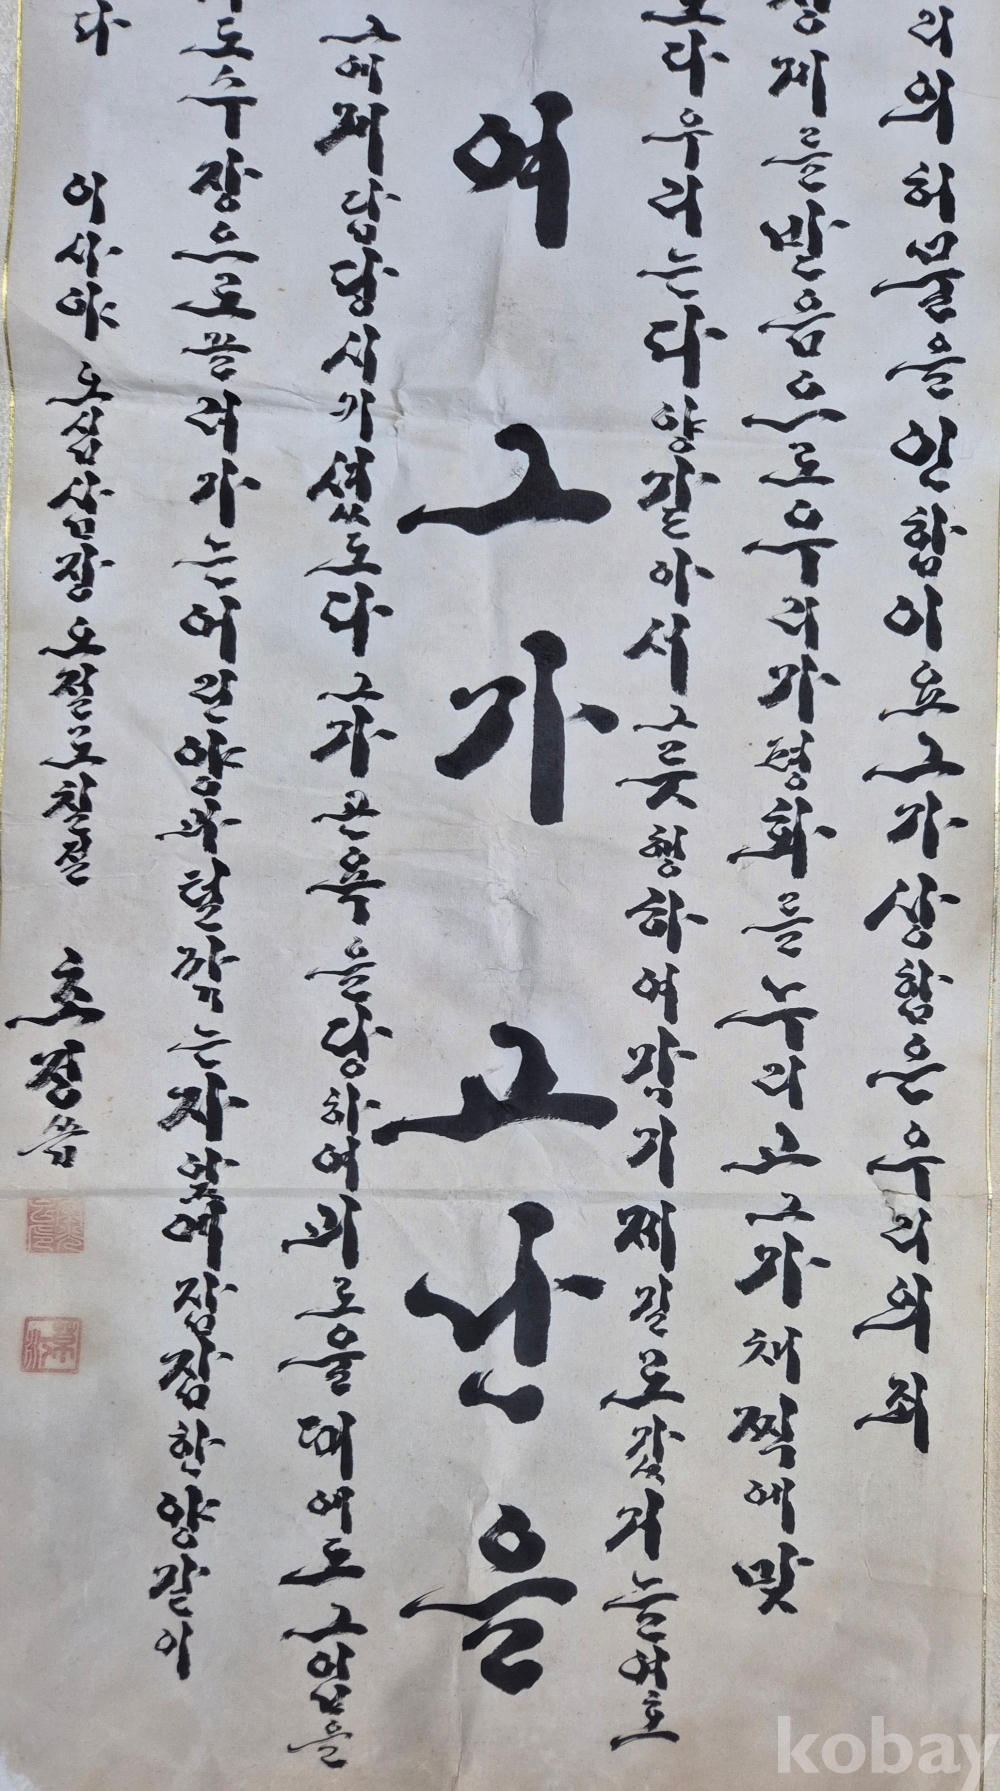 리의 허물을 인함이요 그가 상함은 우리의 죄
를 받음으로 우리가 평화를 누리고 그가 채찍에 맞
다 우리는 다 양 같아서 그릇 행하여 각기 제 길로 갔거늘 여호
여 그가 곤욕을
그에게 담당시키셨도다 그가 곤욕을 당하여 괴로울 때에도 그 입을
도수장으로 끌려가는 어린 양과 털 깎는 자 앞에 잠잠한 양 같이
다 이사야 오십삼장 오절로 칠절 초정 씀
kobay